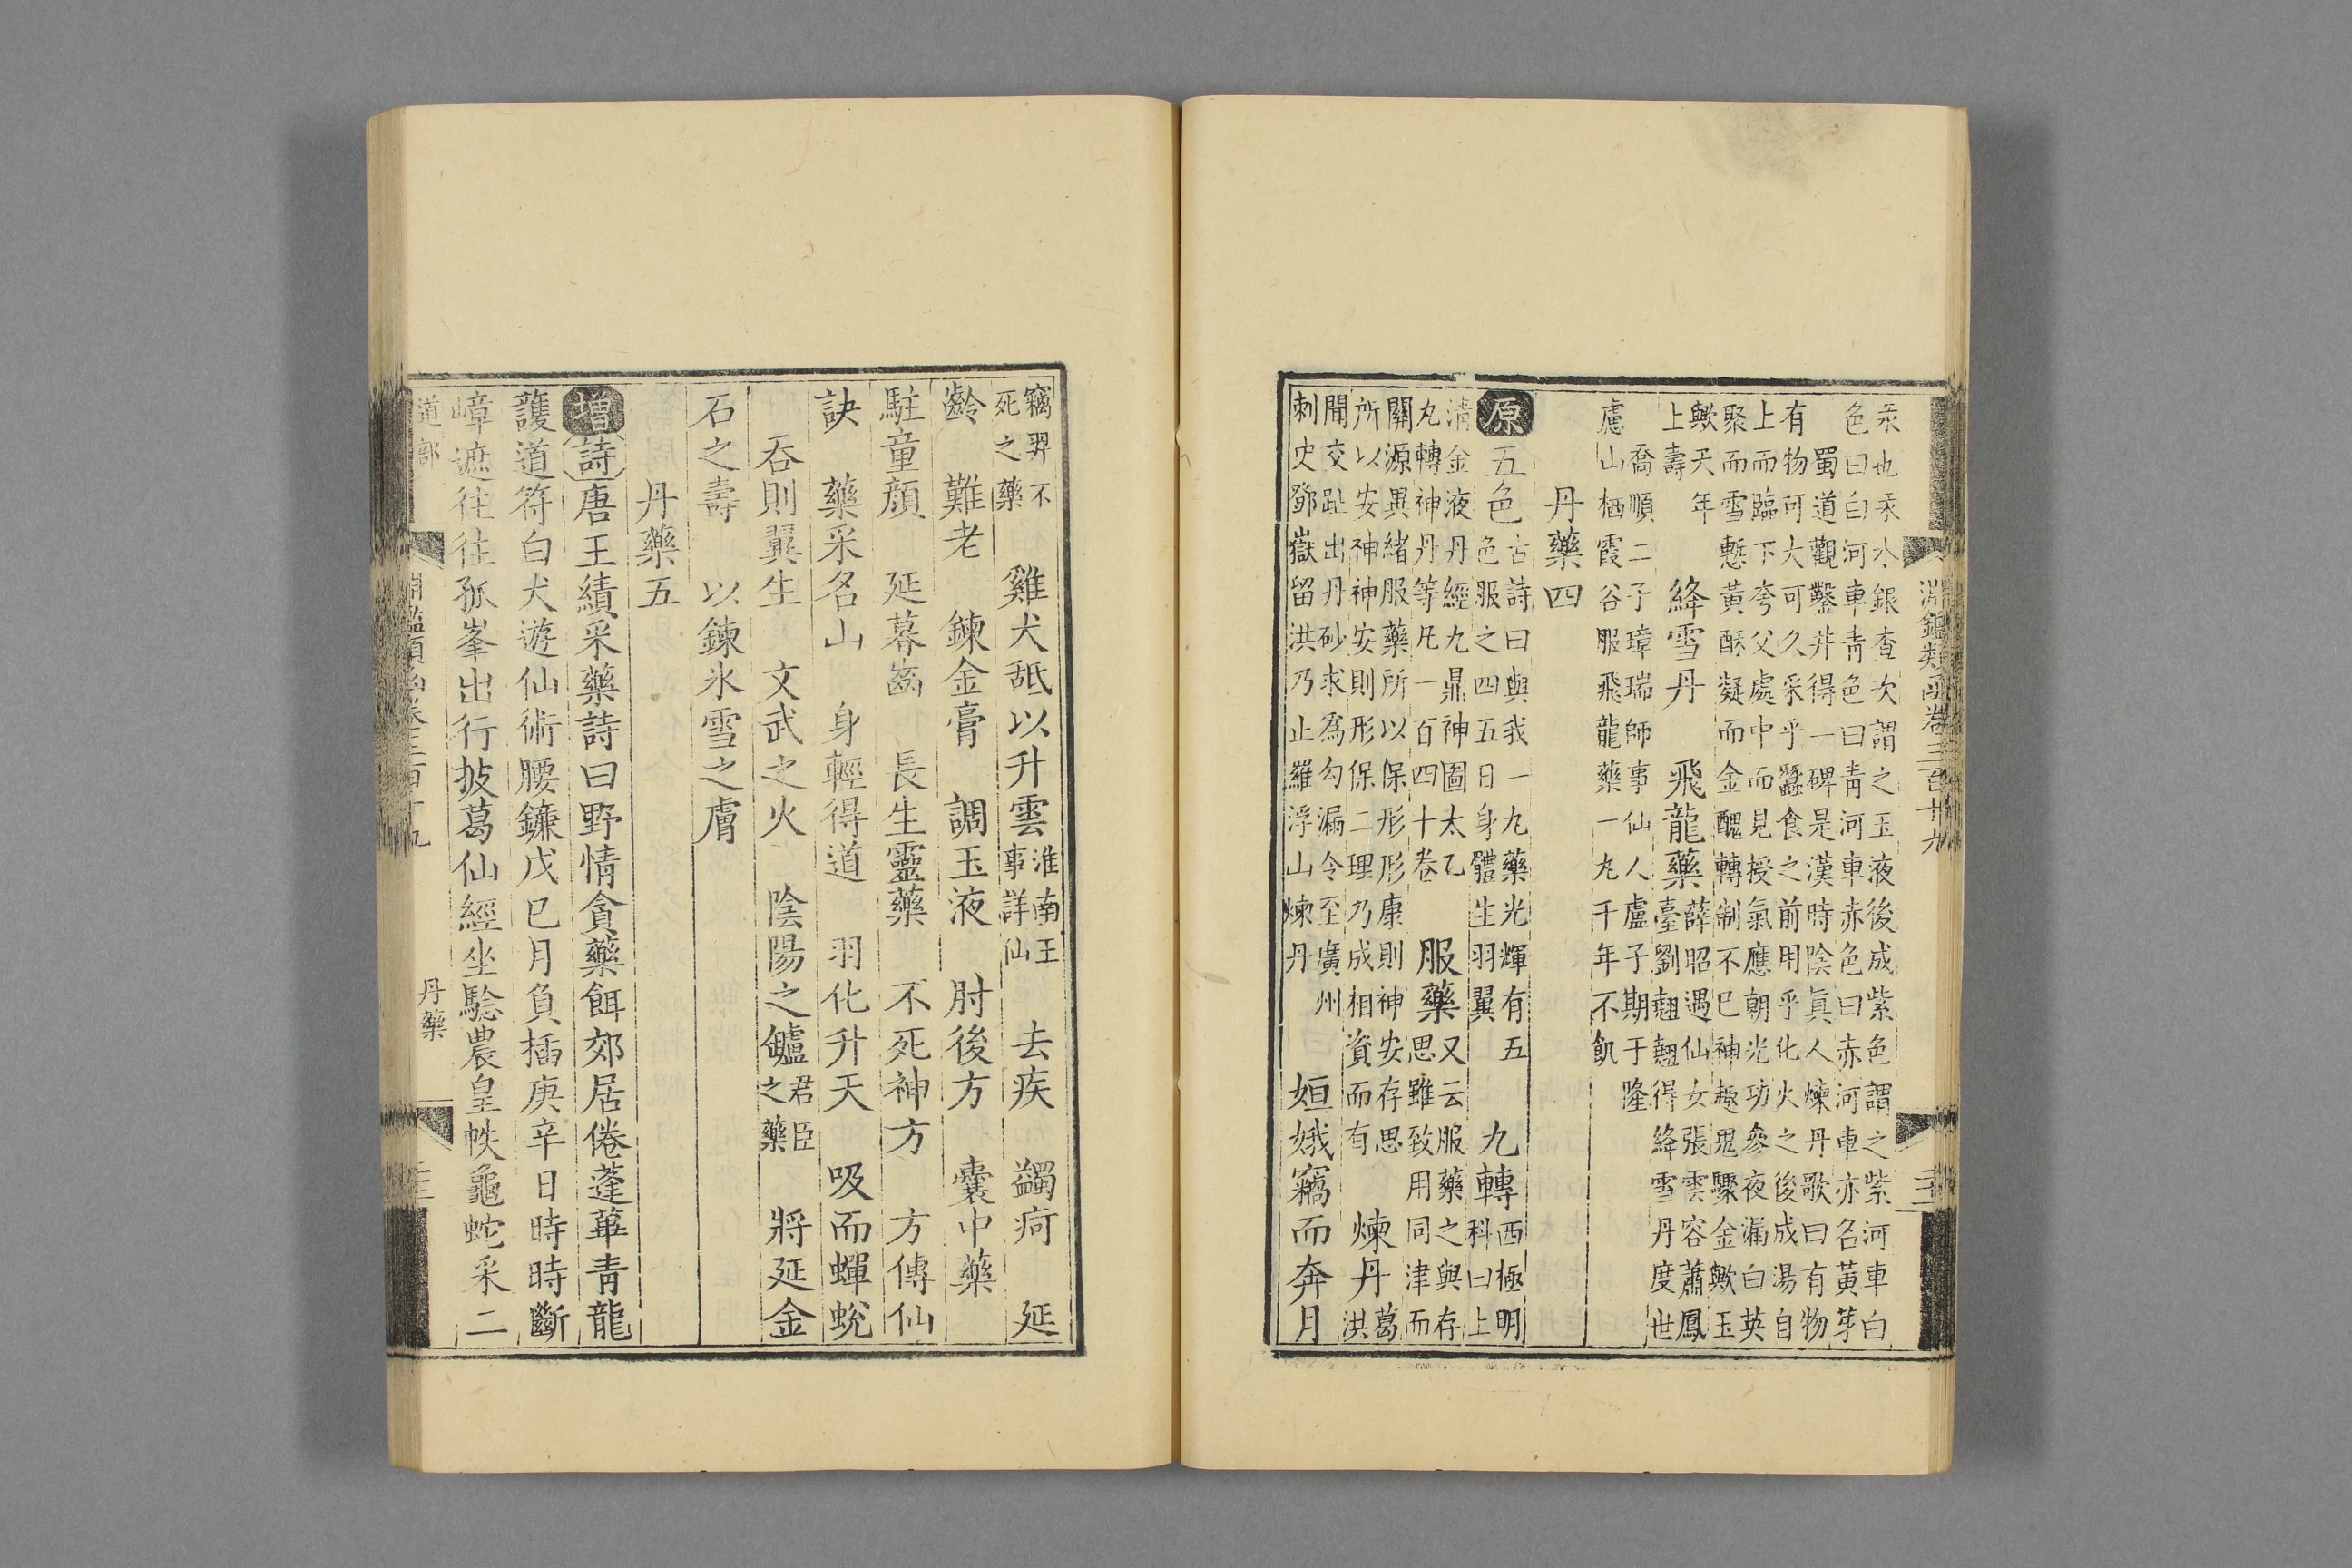 淵鑑類函卷三百十九
汞也汞水銀查次謂之玉液後成紫色謂之紫河車白
色曰白河車青色曰青河車赤色曰赤河車亦名黃芽
蜀道觀鑿井得一碑是漢時陰真人煉丹歌曰有物
有物可大可久采乎蠶食之前用乎化火之後成湯自
上而臨下夸父處中而見授氣應朝光功參夜漏白英
聚而雪慙黃酥凝而金醜轉制不已神趣鬼驟金歟玉
歟天年
上壽
絳雪丹
飛龍藥
薛昭遇仙女張雲容蕭鳳
臺劉翹翹得絳雪丹度世
喬順二子璋瑞師事仙人盧子期于隆
慮山栖霞谷服飛龍藥一丸千年不飢
丹藥四
原
五色
古詩曰與我一丸藥光輝有五
色服之四五日身體生羽翼
九轉
西極明
科曰上
清金液丹經九鼎神圖太乙
九轉神丹等凡一百四十卷
服藥
又云服藥之與存
思雖致用同津而
關源異緒服藥所以保形形康則神安存思
所以安神神安則形保二理乃成相資而有
煉丹
葛
洪
聞交趾出丹砂求為勾漏令至廣州
刺史鄧嶽留洪乃止羅浮山煉丹
姮娥竊而奔月
竊羿不
死之藥
雞犬舐以升雲
淮南王
事詳仙
去疾
蠲痾
延
齡
難老
鍊金膏
調玉液
肘後方
囊中藥
駐童顏
延暮齒
長生靈藥
不死神方
方傳仙
訣
藥采名山
身輕得道
羽化升天
吸而蟬蛻
吞則翼生
文武之火
陰陽之鑪
君臣
之藥
將延金
石之壽
以鍊氷雪之膚
丹藥五
增詩唐王績采藥詩曰野情貪藥餌郊居倦蓬蓽青龍
護道符白犬遊仙術腰鐮戊巳月負插庚辛日時時斷
嶂遮往往孤峯出行披葛仙經坐騐農皇帙龜蛇采二
道部
丹藥